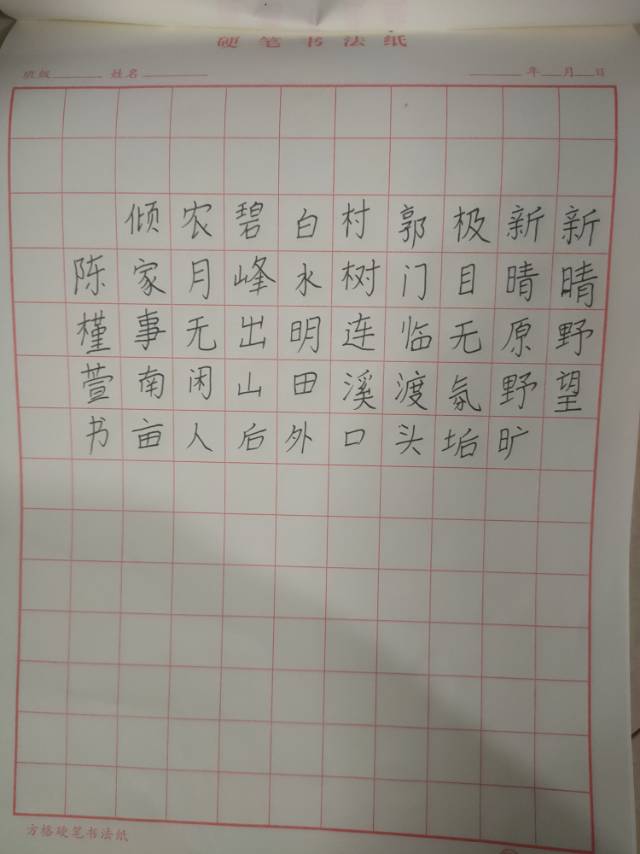 硬笔书法纸
班级______ 姓名________ ______年__月__日
新晴野望
新晴原野旷
极目无氛垢
郭门临渡头
村树连溪口
白水明田外
碧峰出山后
农月无闲人
倾家事南亩
陈槿萱书
方格硬笔书法纸